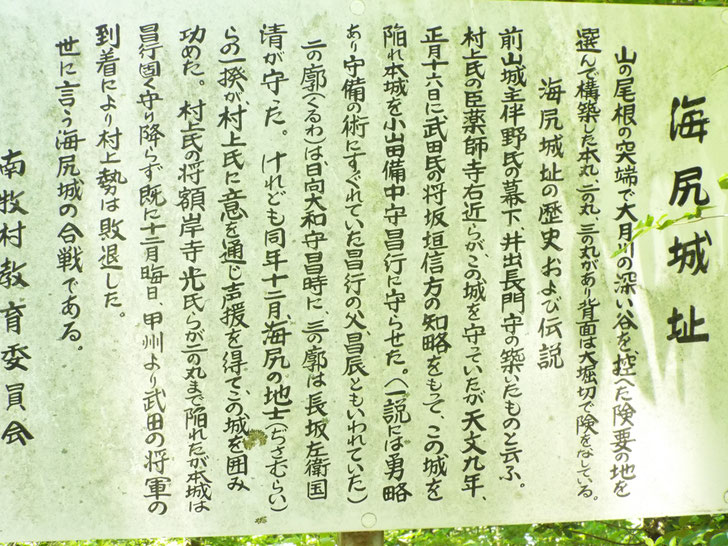 海尻城址
山の尾根の突端で大月川の深い谷を控へた険要の地を
選んで構築した本丸、二の丸、三の丸があり背面は大堀切で険をなしている。
海尻城址の歴史および伝説
前山城主伴野氏の幕下、井出長門守の築いたものと云ふ。
村上氏の臣薬師寺右近らが、この城を守っていたが天文九年、
正月十六日に武田氏の将坂垣信方の知略をもって、この城を
陥れ本城を小山田備中守昌行に守らせた。(一説には勇略
あり守備の術にすぐれていた昌行の父、昌辰ともいわれていた)
二の廓(くるわ)は、日向大和守昌時に、三の廓は長坂左衛国
清が守った。けれども同年十二月、海尻の地士(ちざむらい)
らの一揆が、村上氏に意を通じ声援を得てこの城を囲み
功めた。村上氏の将額岸寺光氏らが二の丸まで陥れたが本城は
昌行固く守り降らず既に十二月晦日、甲州より武田の将軍の
到着により村上勢は敗退した。
世に言う海尻城の合戦である。
南牧村教育委員会